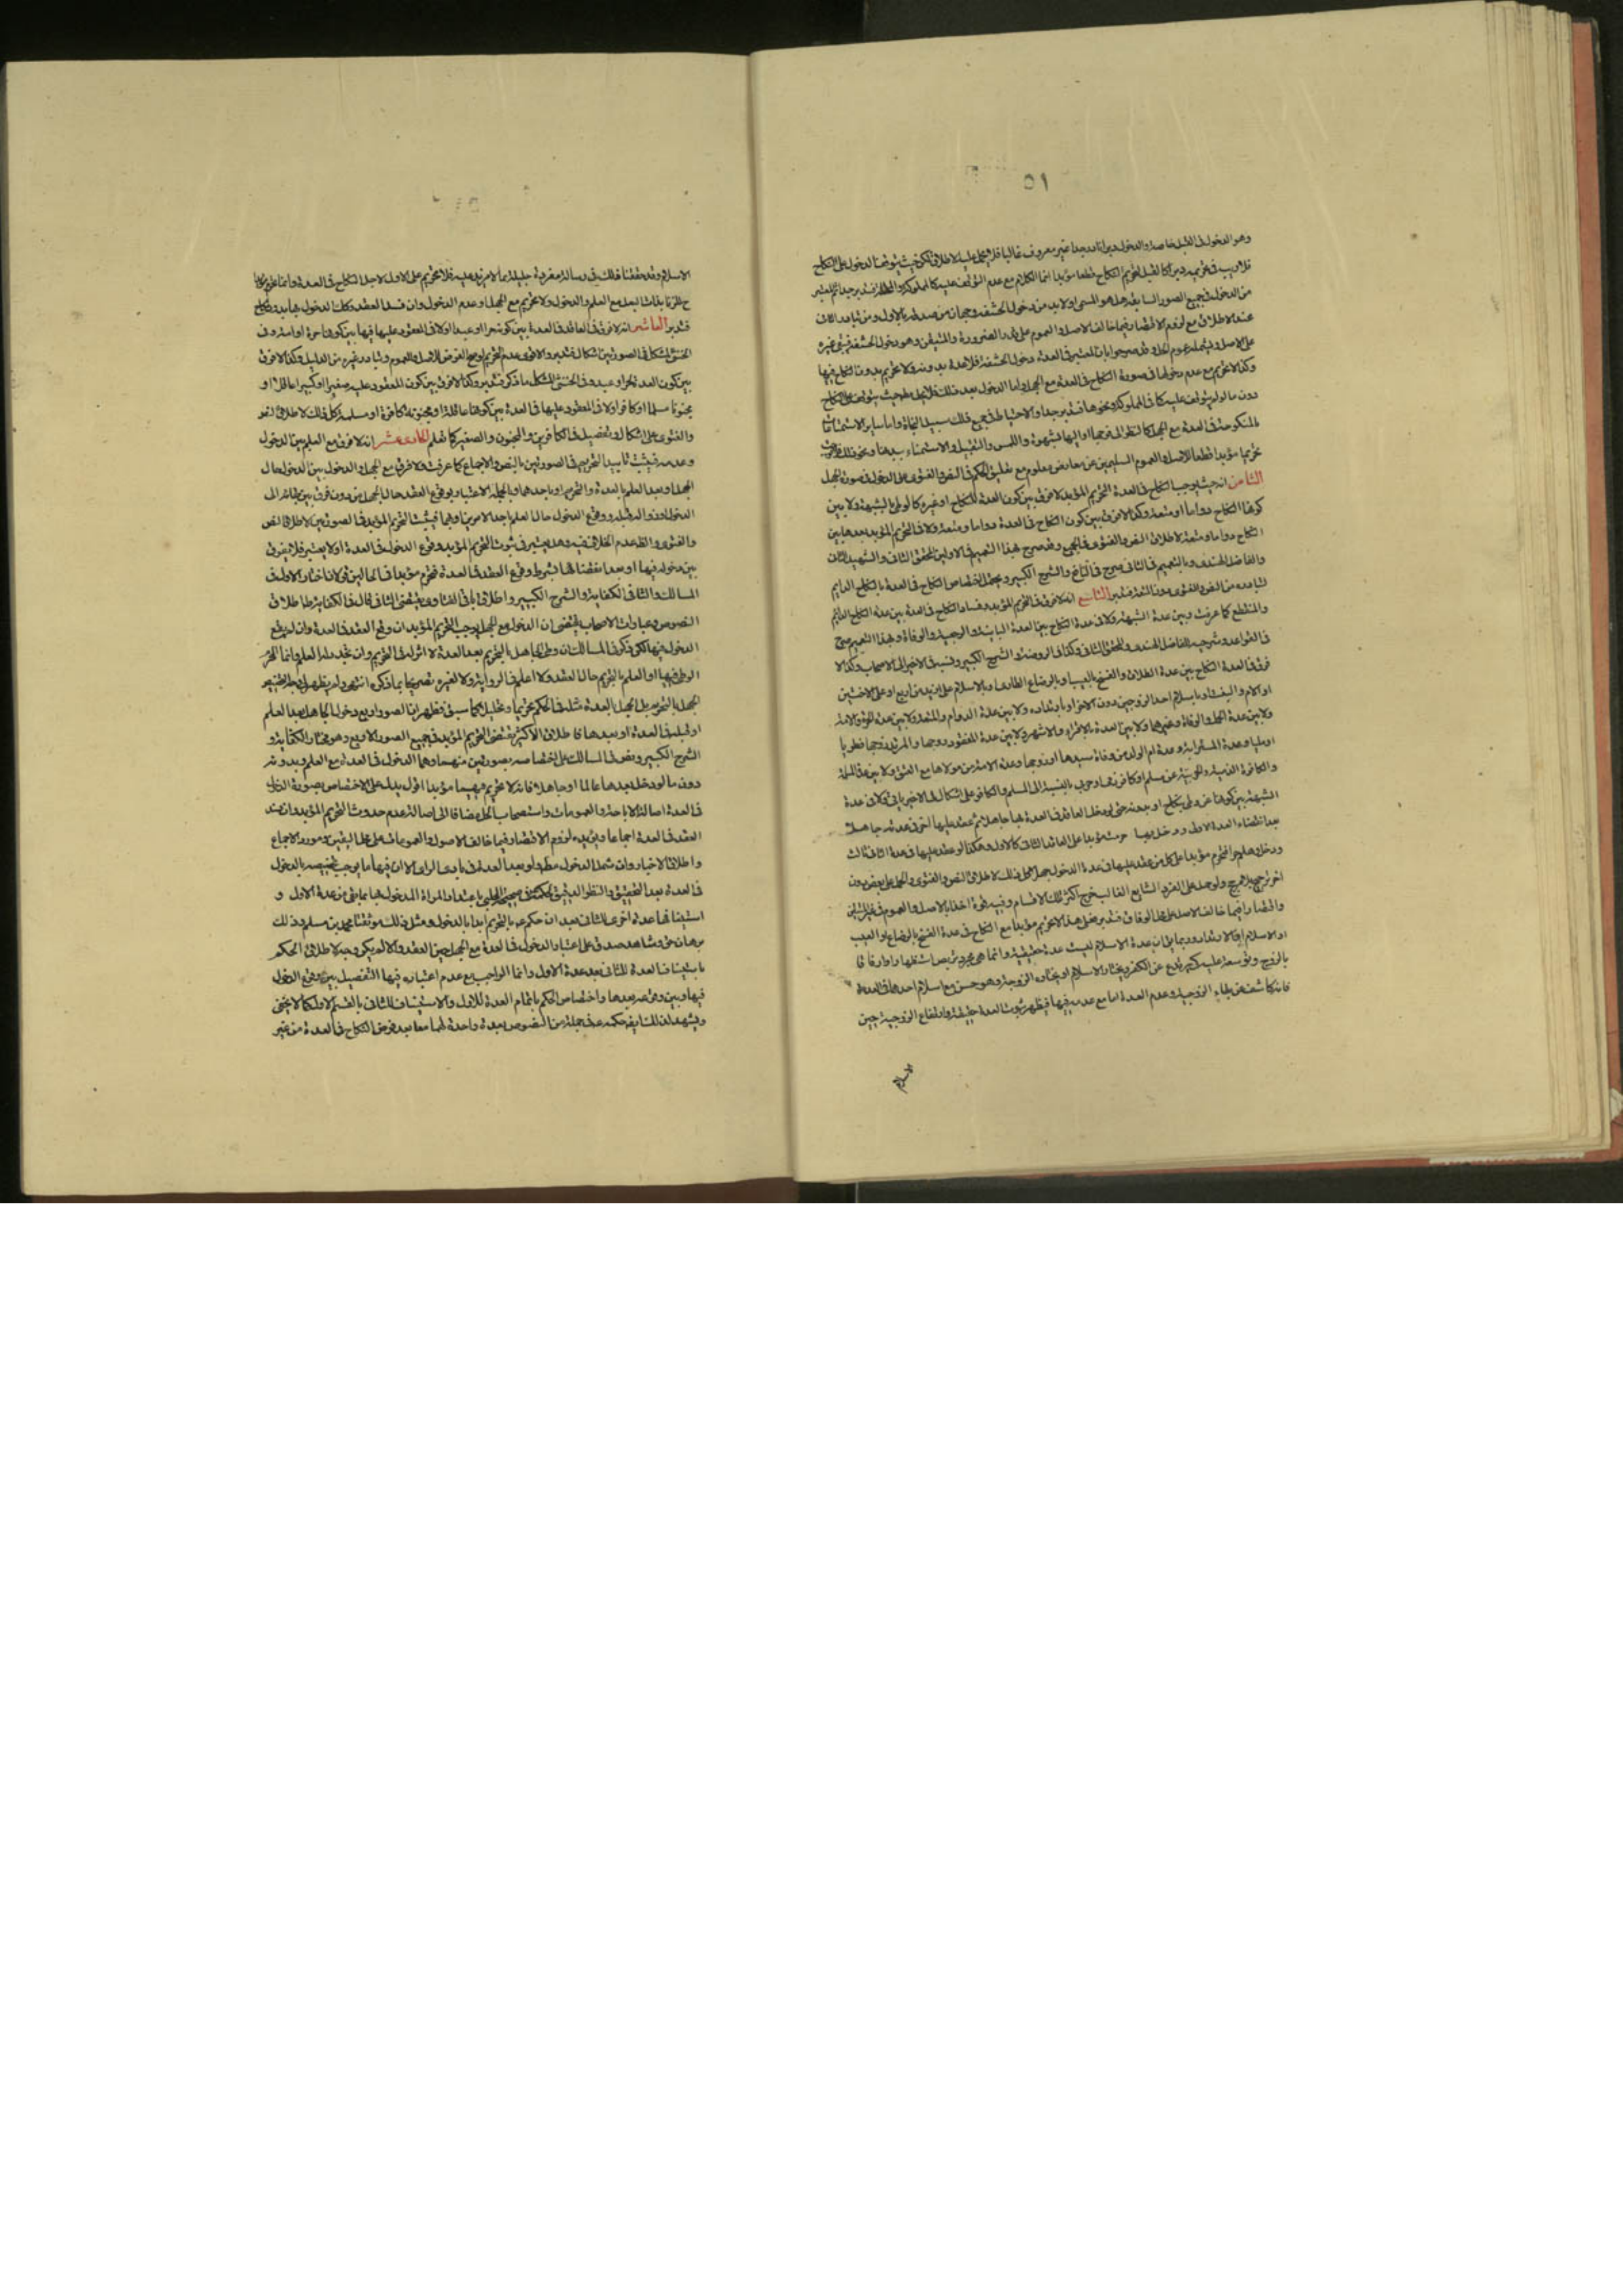 ٥١
وهو الدخول في القبل خاصة والدخول دبرا نادر جدا غير معروف غالبا فلا يحمل عليه الاطلاق لكن حيث يتوقف الدخول على النكاح
فلا ريب في تحريمه دبرا كالقبل لتحريم النكاح قطعا مؤبدا انما الكلام مع عدم التوقف عليه كالمملوكة
من الدخول في جميع الصور السابقة هل هو المسمى او لا بد من دخول الحشفة وجهان من صدقه بالاول ومن تبادر الثاني
عند الاطلاق مع لزوم الاقتصار فيما خالف الاصل والعموم على قدر الضرورة والمتيقن وهو دخول الحشفة فيبقى غيره
على الاصل ويشمله عموم الحل وقد صرحوا بان المعتبر في العدة دخول الحشفة فلا عدة بدونه ولا تحريم بدون النكاح فيها
وكذا لا تحريم مع عدم دخولها في صورة النكاح في العدة مع الجهل واما الدخول بعد ذلك
دون ما لو لم يتوقف عليه كما في المملوكة ونحوها فتدبر جدا والاحتياط في جميع ذلك سبيل النجاة واما ساير الاستمتاعات
بالمنكوحة في العدة مع الجهل كالنظر الى فرجها او اليها بشهوة واللمس والتقبيل والاستمناء بيدها ونحو ذلك
تحريما مؤبدا قطعا للاصل والعموم السليمين عن معارض معلوم مع تعليق الحكم في النص والفتوى على الدخول في صورة الجهل
الثامن انه حيث يوجب النكاح في العدة التحريم المؤبد لا فرق بين كون العدة للنكاح او غيره كالوطي بالشبهة ولا بين
كون النكاح دواما او متعة وكذا لا فرق بين كون النكاح في العدة دواما ومتعة ولا في التحريم المؤبد بعدها بين
النكاح دواما ومتعة لاطلاق النص والفتوى في الجميع وقد صرح بهذا التعميم في الاولين المحقق الثاني والشهيد الثاني
والفاضل الهندي وبالتعميم في الثاني صرح في والشرح الكبير ويحتمل اختصاص النكاح في العدة بالنكاح الدايم
لتبادره من النص والفتوى دون المتعة فتدبر التاسع انه لا فرق في التحريم المؤبد وفساد النكاح في العدة بين عدة النكاح الدايم
والمنقطع كما عرفت وبين عدة الشبهة ولا في عدة النكاح بين العدة الباينة والرجعية والوفاة وبهذا التعميم صرح
في القواعد وشرحيه للفاضل الهندي والمحقق الثاني وكذا في الروضة والشرح الكبير ونسبه في الاخير الى الاصحاب وكذا لا
فرق في العدة النكاح بين عدة الطلاق والفسخ بالعيب وبالرضاع الطاري وبالاسلام على ازيد من اربع او على الاختين
او الام والبنت او باسلام احد الزوجين دون الاخر او بارتداده ولا بين عدة الدوام والمتعة ولا بين عدة الحرة والامة
ولا بين عدة الحمل والوفاة وغيرهما ولا بين العدة بالاقراء والاشهر ولا بين عدة المفقود زوجها والمرتد زوجها فطريا
او مليا وعدة المسترابة وعدة ام الولد من وفاة سيدها او زوجها وعدة الامة من مولاها مع العتق ولا بين عدة المسلمة
والكافرة الذمية والحربية عن مسلم او كافر ذمي او حربي بالنسبة الى المسلم والكافر على اشكال في الاخير ياتي ولا في عدة
الشبهة بين كونها عن وطي بنكاح او بدونه حتى لو دخل العاقد في العدة بها جاهلا ثم عقد عليها اخر في عدته جاهلا
بعد انقضاء العدة الاولى ودخل بها حرمت مؤبدا على العاقد الثاني كالاول وهكذا لو عقد عليها في عدة الثاني ثالث
ودخل وهلم جرا فتحرم مؤبدا على كل من عقد عليها في عدة الدخول جهلا كل ذلك لاطلاق النص والفتوى والحمل على بعض دون
اخر ترجيح بلا مرجح ولو حمل على الفرد الشايع الغالب خرج اكثر تلك الاقسام وفيه قوة اخذا بالاصل والعموم في غير المتيقن
واقتصارا فيما خالف الاصل على محل الوفاق فتدبر فعلى هذا لا تحريم مؤبدا مع النكاح في عدة الفسخ بالرضاع او العيب
او الاسلام او الارتداد وربما يقال ان عدة الاسلام ليست عدة حقيقية وانما هي مجرد تربص اشفاقا وارفاقا
بالزوج وتوسعة عليه كي يرتدع عن الكفر ويختار الاسلام او يختاره الزوجة وهو حسن مع اسلام احدهما في العدة
فانه كاشف عن بقاء الزوجية وعدم العدة اما مع عدمه فيها فيظهر ثبوت العدة حقيقة وانقطاع الزوجية حين
الاسلام
الاسلام وقد حققنا ذلك في رسالة مفردة جليلة بما لا مزيد عليه فلا تحريم على الاول لاجل النكاح في العدة وانما
ح للزنا بذات البعل مع العلم والدخول ولا تحريم مع الجهل او عدم الدخول وان فسد العقد وكذا الدخول بها بدون نكاح
فتدبر العاشر انه لا فرق في العاقد في العدة بين كونه حرا او عبدا ولا في المعقود عليها فيها بين كونها حرة او امة وفي
الخنثى المشكل في الصورتين اشكال فتدبر والاقوى عدم التحريم اوضح الفرض للاصل والعموم وتبادر غيره من الدليل وكذا لا فرق
بين كون العدة لحر او عبد وفي الخنثى المشكل ما ذكر فتدبر وكذا لا فرق بين كون المعقود عليه صغيرا او كبيرا عاقلا او
مجنونا مسلما او كافرا ولا في المعقود عليها في العدة بين كونها عاقلة او مجنونة كافرة او مسلمة كل ذلك لاطلاق النص
والفتوى على اشكال وتفصيل في الكافرين والمجنون والصغير كما تعلم الحادي عشر انه لا فرق مع العلم بين الدخول
وعدمه فيثبت تابيد التحريم في الصورتين بالنص والاجماع كما عرفت ولا فرق مع الجهل والدخول بين الدخول حال
الجهل وبعد العلم بالعدة والتحريم او باحدهما وبالجملة الاعتبار بوقوع العقد حال الجهل من دون فرق بين بقائه الى
الدخول او زواله قبله ووقوع الدخول حال العلم باحد الامرين او بهما فيثبت التحريم المؤبد في الصورتين لاطلاق النص
والفتوى والظ عدم الخلاف فيه وهل يعتبر في ثبوت التحريم المؤبد وقوع الدخول في العدة او لا يعتبر فلا يفرق
بين دخوله فيها او بعد انقضائها بشرط وقوع العقد في العدة فتحرم مؤبدا في الحالين قولان اختار الاول في
المسالك والثاني الكفاية والشرح الكبير واطلاق باقي الفتاوى يقتضي الثاني قال في الكفاية اطلاق
النصوص وعبارات الاصحاب يقتضي ان الدخول مع الجهل يوجب التحريم المؤبد ان وقع العقد في العدة وان لم يقع
الدخول فيها لكن ذكر في المسالك ان وطي الجاهل بالتحريم بعد العدة لا اثر له في التحريم وان تجدد له العلم وانما المحرم
الوطي فيها او العلم بالتحريم حال العقد ولا اعلم في الرواية ولا لغيره تصريحا بما ذكره انتهى ولم يظهر
الجهل بالتحريم بل الجهل بالعدة مثله في الحكم تحريما وتحليلا كما سبق فظهر ان الصور اربع دخول الجاهل بعد العلم
او قبله في العدة او بعدها فاطلاق الاكثر يقتضي التحريم المؤبد في جميع الصور الاربع وهو مختار الكفاية و
الشرح الكبير ونص في المسالك على اختصاصه بصورتين منهما وهما الدخول في العدة مع العلم وبدونه
دون ما لو دخل بعدها عالما او جاهلا فانه لا تحريم فيهما مؤبدا اقول يدل على الاختصاص بصورة الدخول
في العدة اصالة الاباحة والعمومات واستصحاب الحل مضافا الى اصالة عدم حدوث التحريم المؤبد وان فسد
العقد في العدة اجماعا ويؤيده لزوم الاقتصار فيما خالف الاصول والعمومات على محل اليقين ومورد الاجماع
واطلاق الاخبار وان شمل الدخول مط ولو بعد العدة في بادي الراى الا ان فيها ما يوجب تخصيصه بالدخول
في العدة بعد التحقيق والنظر الدقيق لحكمه في صحيح الحلبي باعتداد المراة المدخول بها بما بقي من عدة الاول و
استينافها عدة اخرى للثاني بعد ان حكم عم بالتحريم ابدا بالدخول ومثل ذلك موثقة محمد بن مسلم وذلك
برهان حق وشاهد صدق على اعتبار الدخول في العدة مع الجهل حين العقد والا لم يكن وجه لاطلاق الحكم
باستيناف العدة للثاني بعد عدة الاول وانما الواجب مع عدم اعتباره فيها التفصيل بين وقوع الدخول
فيها وبين وقوعه بعدها واختصاص الحكم باتمام العدة للاول والاستيناف للثاني بالقسم الاول كما لا يخفى
ويشهد لذلك ايضا حكمه عم في جملة من النصوص بعدة واحدة لهما معا بعد فرض النكاح في العدة من غير